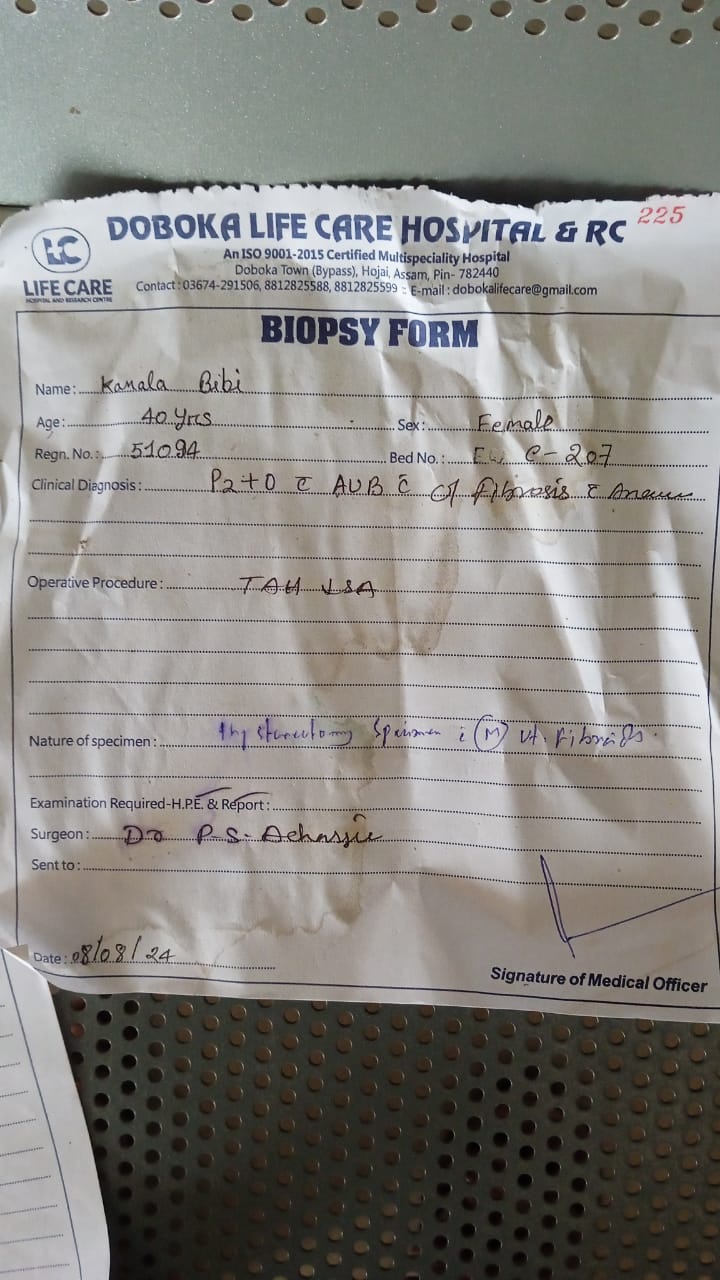 225
LC
LIFE CARE
HOSPITAL AND RESEARCH CENTRE
DOBOKA LIFE CARE HOSPITAL & RC
An ISO 9001-2015 Certified Multispeciality Hospital
Doboka Town (Bypass), Hojai, Assam, Pin- 782440
Contact : 03674-291506, 8812825588, 8812825599 :: E-mail : dobokalifecare@gmail.com
BIOPSY FORM
Name: Kamala Bibi
Age: 40 yrs Sex: Female
Regn. No.: 51094 Bed No.: C-207
Clinical Diagnosis: P2+0 c̄ AUB c̄ Fibrosis c̄
Operative Procedure: TAH
Nature of specimen: Specimen Ⓜ Ut. Fibroids.
Examination Required-H.P.E. & Report:
Surgeon: Dr P.S.
Sent to:
Date: 08/08/24
Signature of Medical Officer